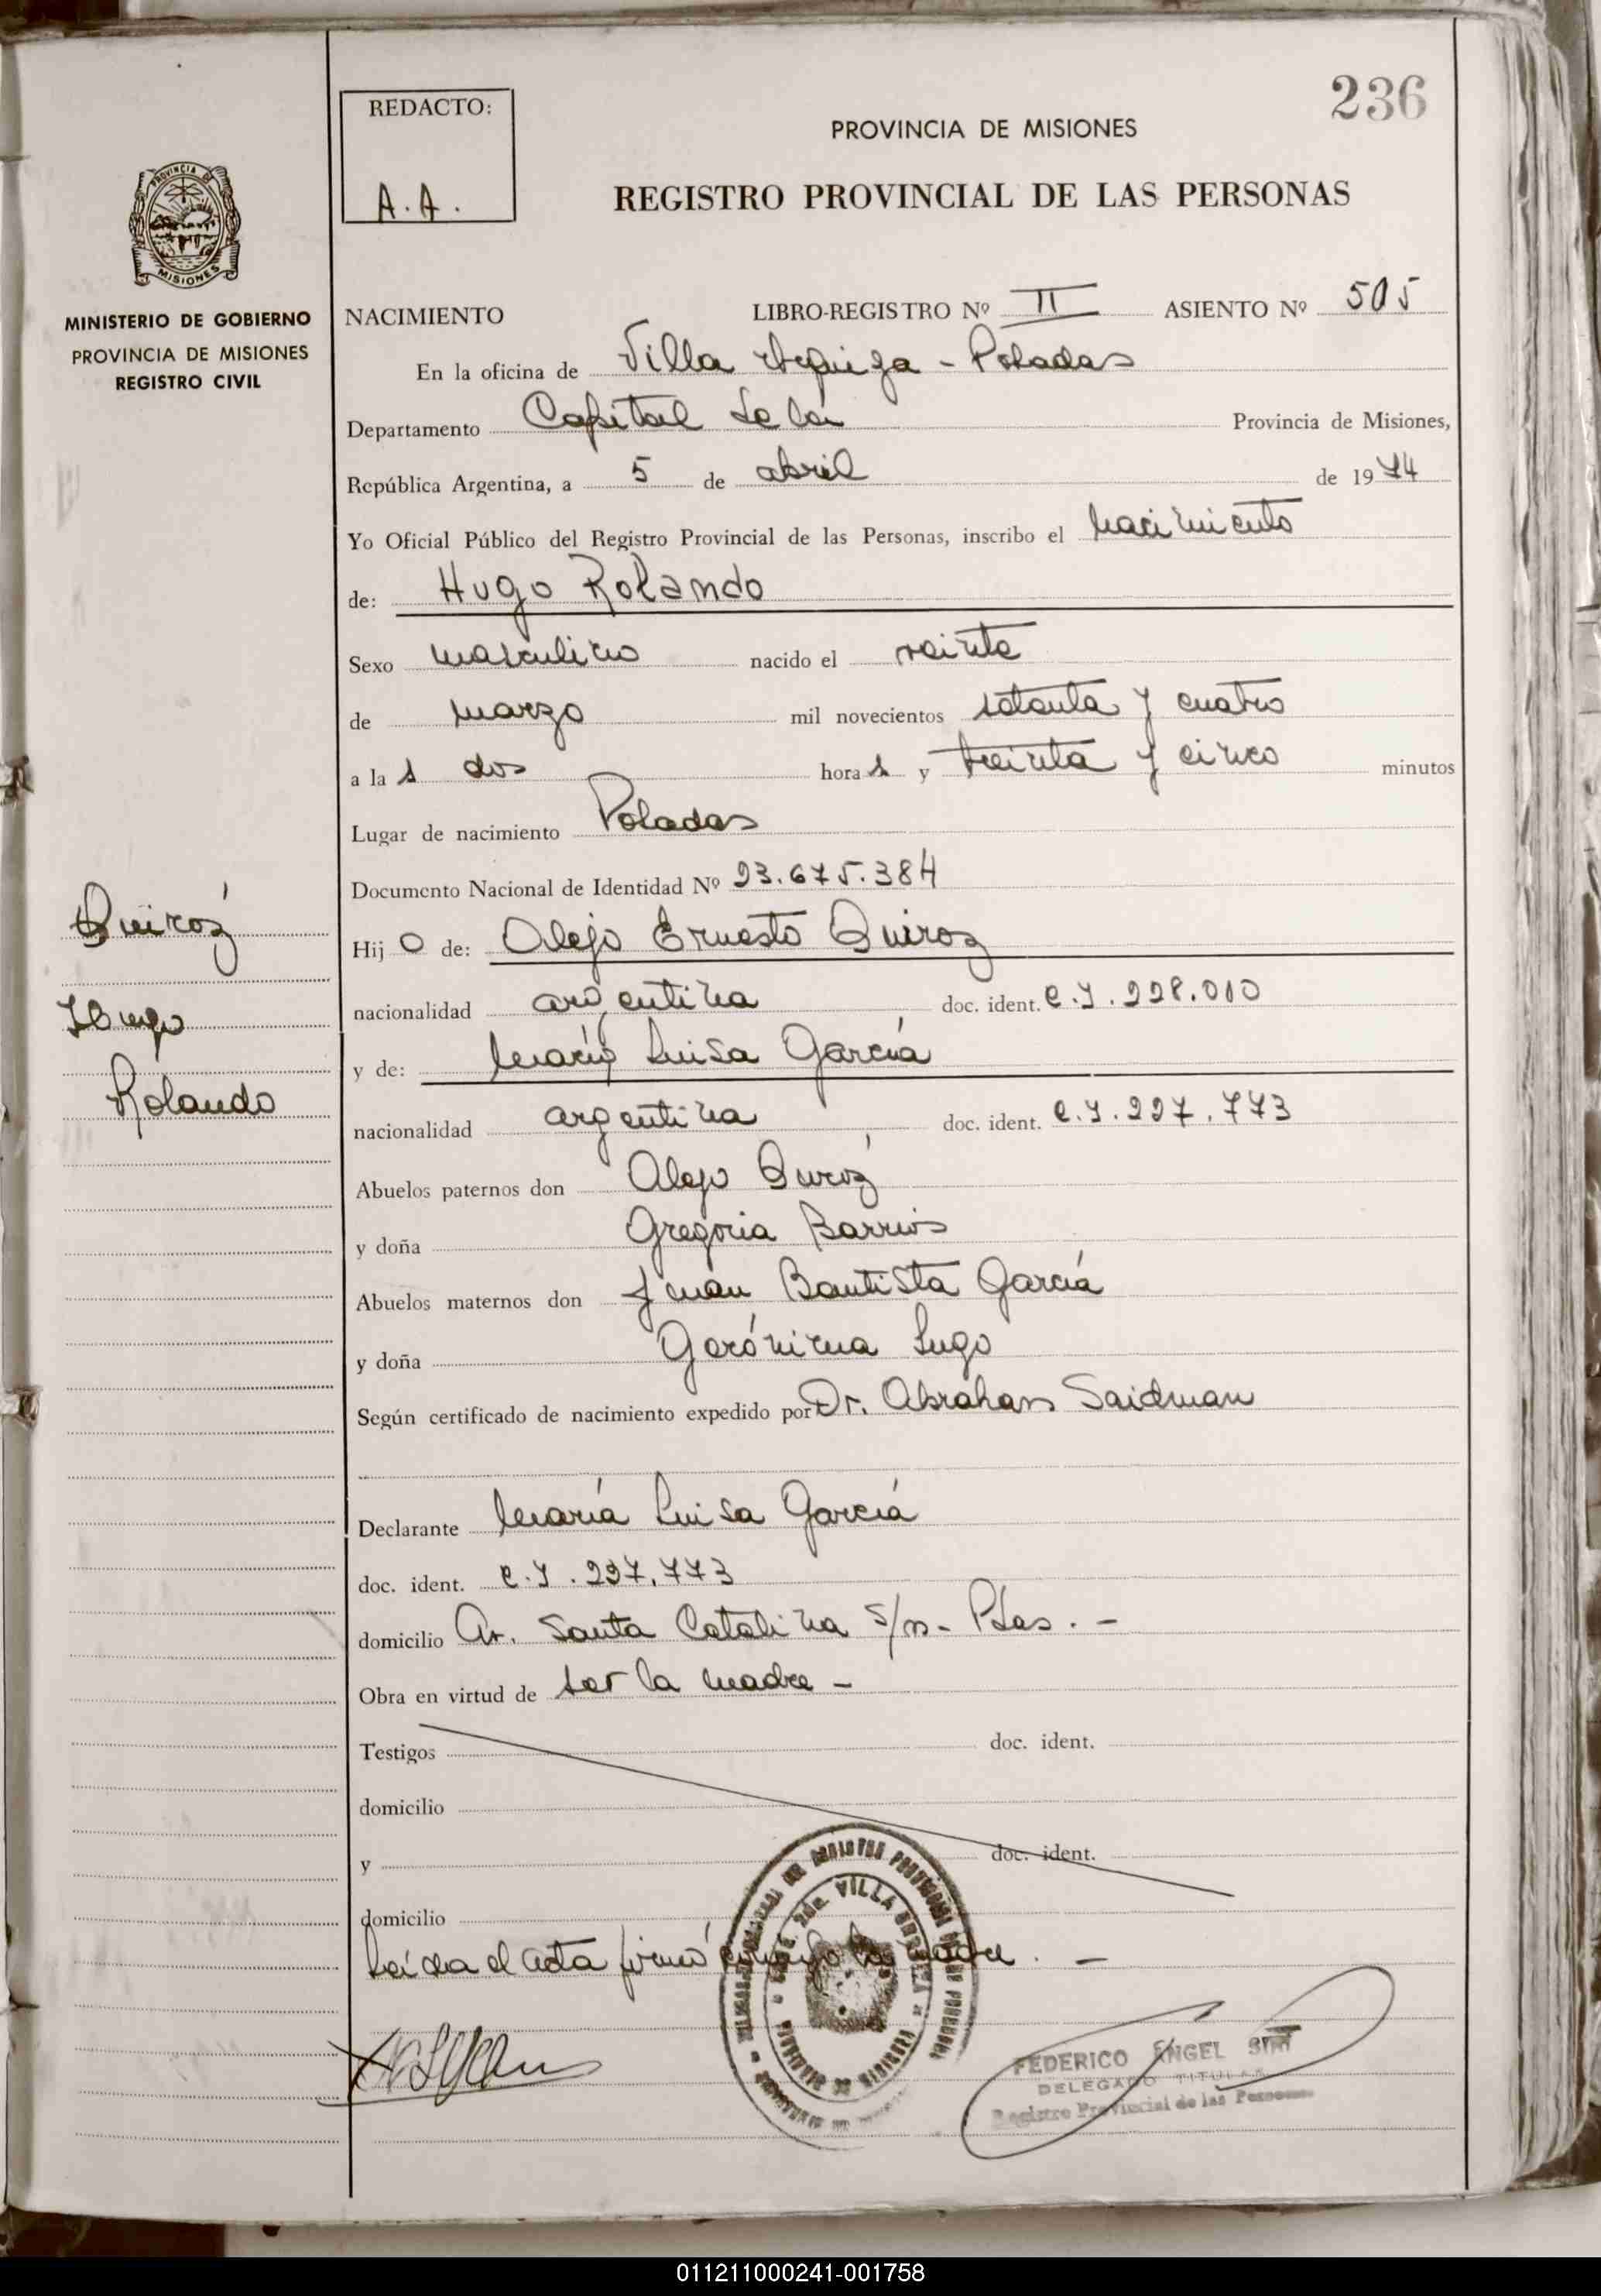 236
REDACTO:
A.A.
PROVINCIA DE MISIONES
REGISTRO PROVINCIAL DE LAS PERSONAS
PROVINCIA D
MISIONES
MINISTERIO DE GOBIERNO
PROVINCIA DE MISIONES
REGISTRO CIVIL
NACIMIENTO LIBRO-REGISTRO Nº II ASIENTO Nº 505
En la oficina de Villa Urquiza - Posadas
Departamento Capital Provincia de Misiones,
República Argentina, a 5 de abril de 1974
Yo Oficial Público del Registro Provincial de las Personas, inscribo el nacimiento
de: Hugo Rolando
Sexo masculino nacido el
de marzo mil novecientos setenta y cuatro
a la s dos hora s y treinta y cinco minutos
Lugar de nacimiento Posadas
Documento Nacional de Identidad Nº 23.675.384
Quiróz
Hij o de: Alejo Ernesto Quiroz
nacionalidad argentina doc. ident. C.I. 228.010
Hugo
y de: María Luisa García
Rolando
nacionalidad argentina doc. ident. C.I. 227.773
Abuelos paternos don Alejo Quiróz
y doña Gregoria Barrios
Abuelos maternos don Juan Bautista García
y doña Gerónima Lugo
Según certificado de nacimiento expedido por Dr. Abraham Saidman
Declarante María Luisa García
doc. ident. C.I. 227.773
domicilio Av. Santa Catalina s/n - Pdas. -
Obra en virtud de ser la madre -
Testigos doc. ident.
domicilio
y doc. ident.
domicilio
Leída el acta firmó conmigo la madre. -
VILLA URQUIZA
FEDERICO ANGEL
DELEGADO TITULAR
Registro Provincial de las Personas
011211000241-001758